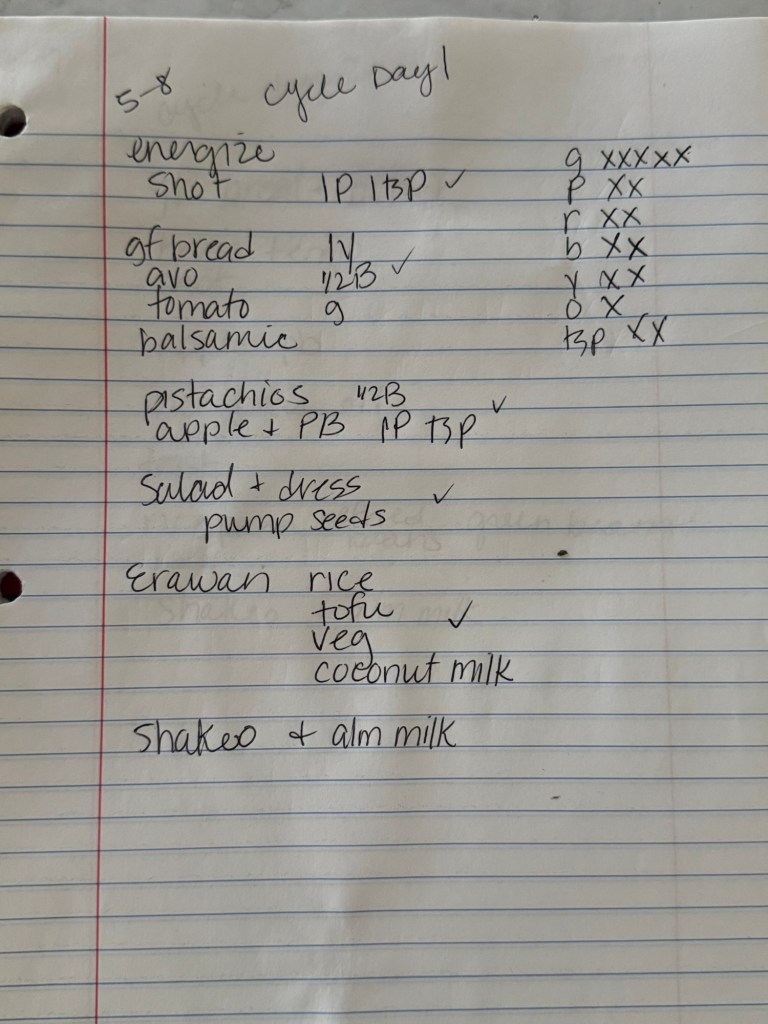 5-8 cycle Day 1
energize
shot 1P 1tsp ✓
gf bread 1y
avo 1/2B ✓
tomato g
balsamic
g xxxxx
p xx
r xx
b xx
y xx
o x
tsp xx
pistachios 1/2B
apple + PB 1P tsp ✓
Salad + dress ✓
pump seeds
Erawan rice
tofu ✓
veg
coconut milk
Shakeo + alm milk